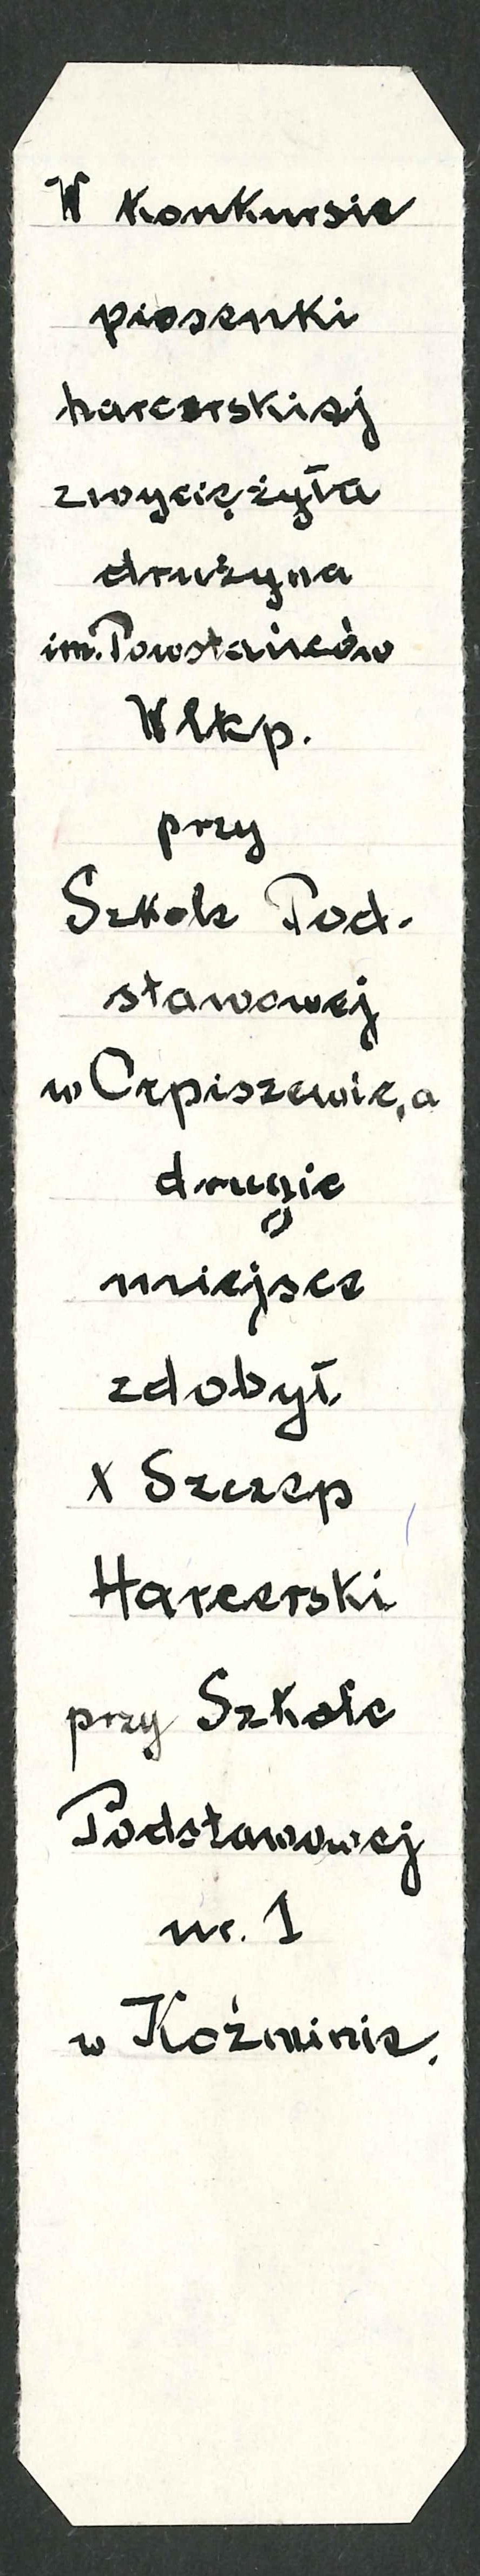 W konkursie
piosenki
harcerskiej
zwyciężyła
drużyna
im. Powstańców
Wlkp.
przy
Szkole Pod-
stawowej
w Orpiszewie, a
drugie
miejsce
zdobył
X Szczep
Harcerski
przy Szkole
Podstawowej
nr. 1
w Koźminie.